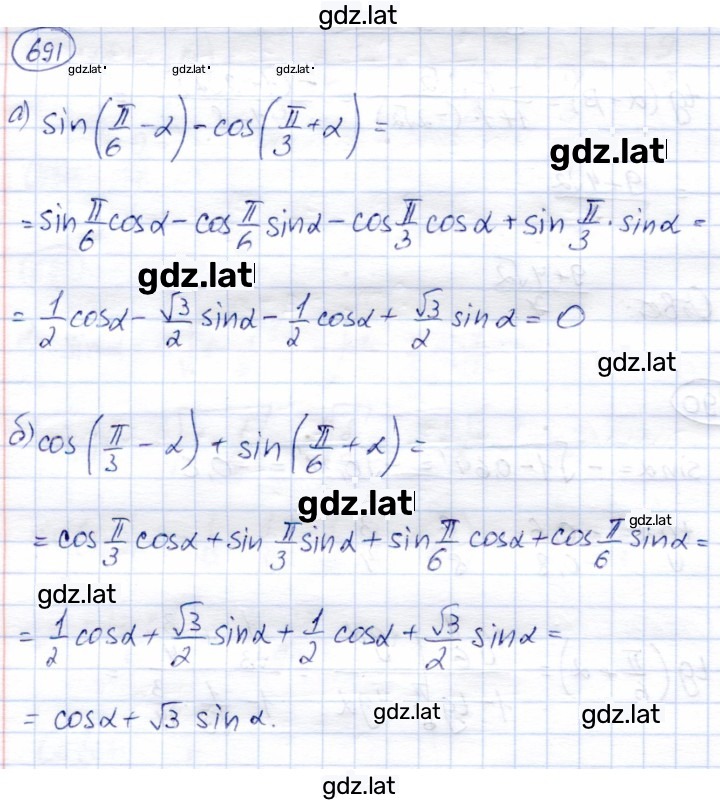 gdz.lat
691
gdz.lat· gdz.lat· gdz.lat·
а) sin(π/6 - α) - cos(π/3 + α) =
gdz.lat
= sin π/6 cosα - cos π/6 sinα - cos π/3 cosα + sin π/3 · sinα =
gdz.lat
= 1/2 cosα - √3/2 sinα - 1/2 cosα + √3/2 sinα = 0
gdz.lat
б) cos(π/3 - α) + sin(π/6 + α) =
gdz.lat
gdz.lat
= cos π/3 cosα + sin π/3 sinα + sin π/6 cosα + cos π/6 sinα =
gdz.lat
= 1/2 cosα + √3/2 sinα + 1/2 cosα + √3/2 sinα =
= cosα + √3 sinα.
gdz.lat gdz.lat
gdz.lat